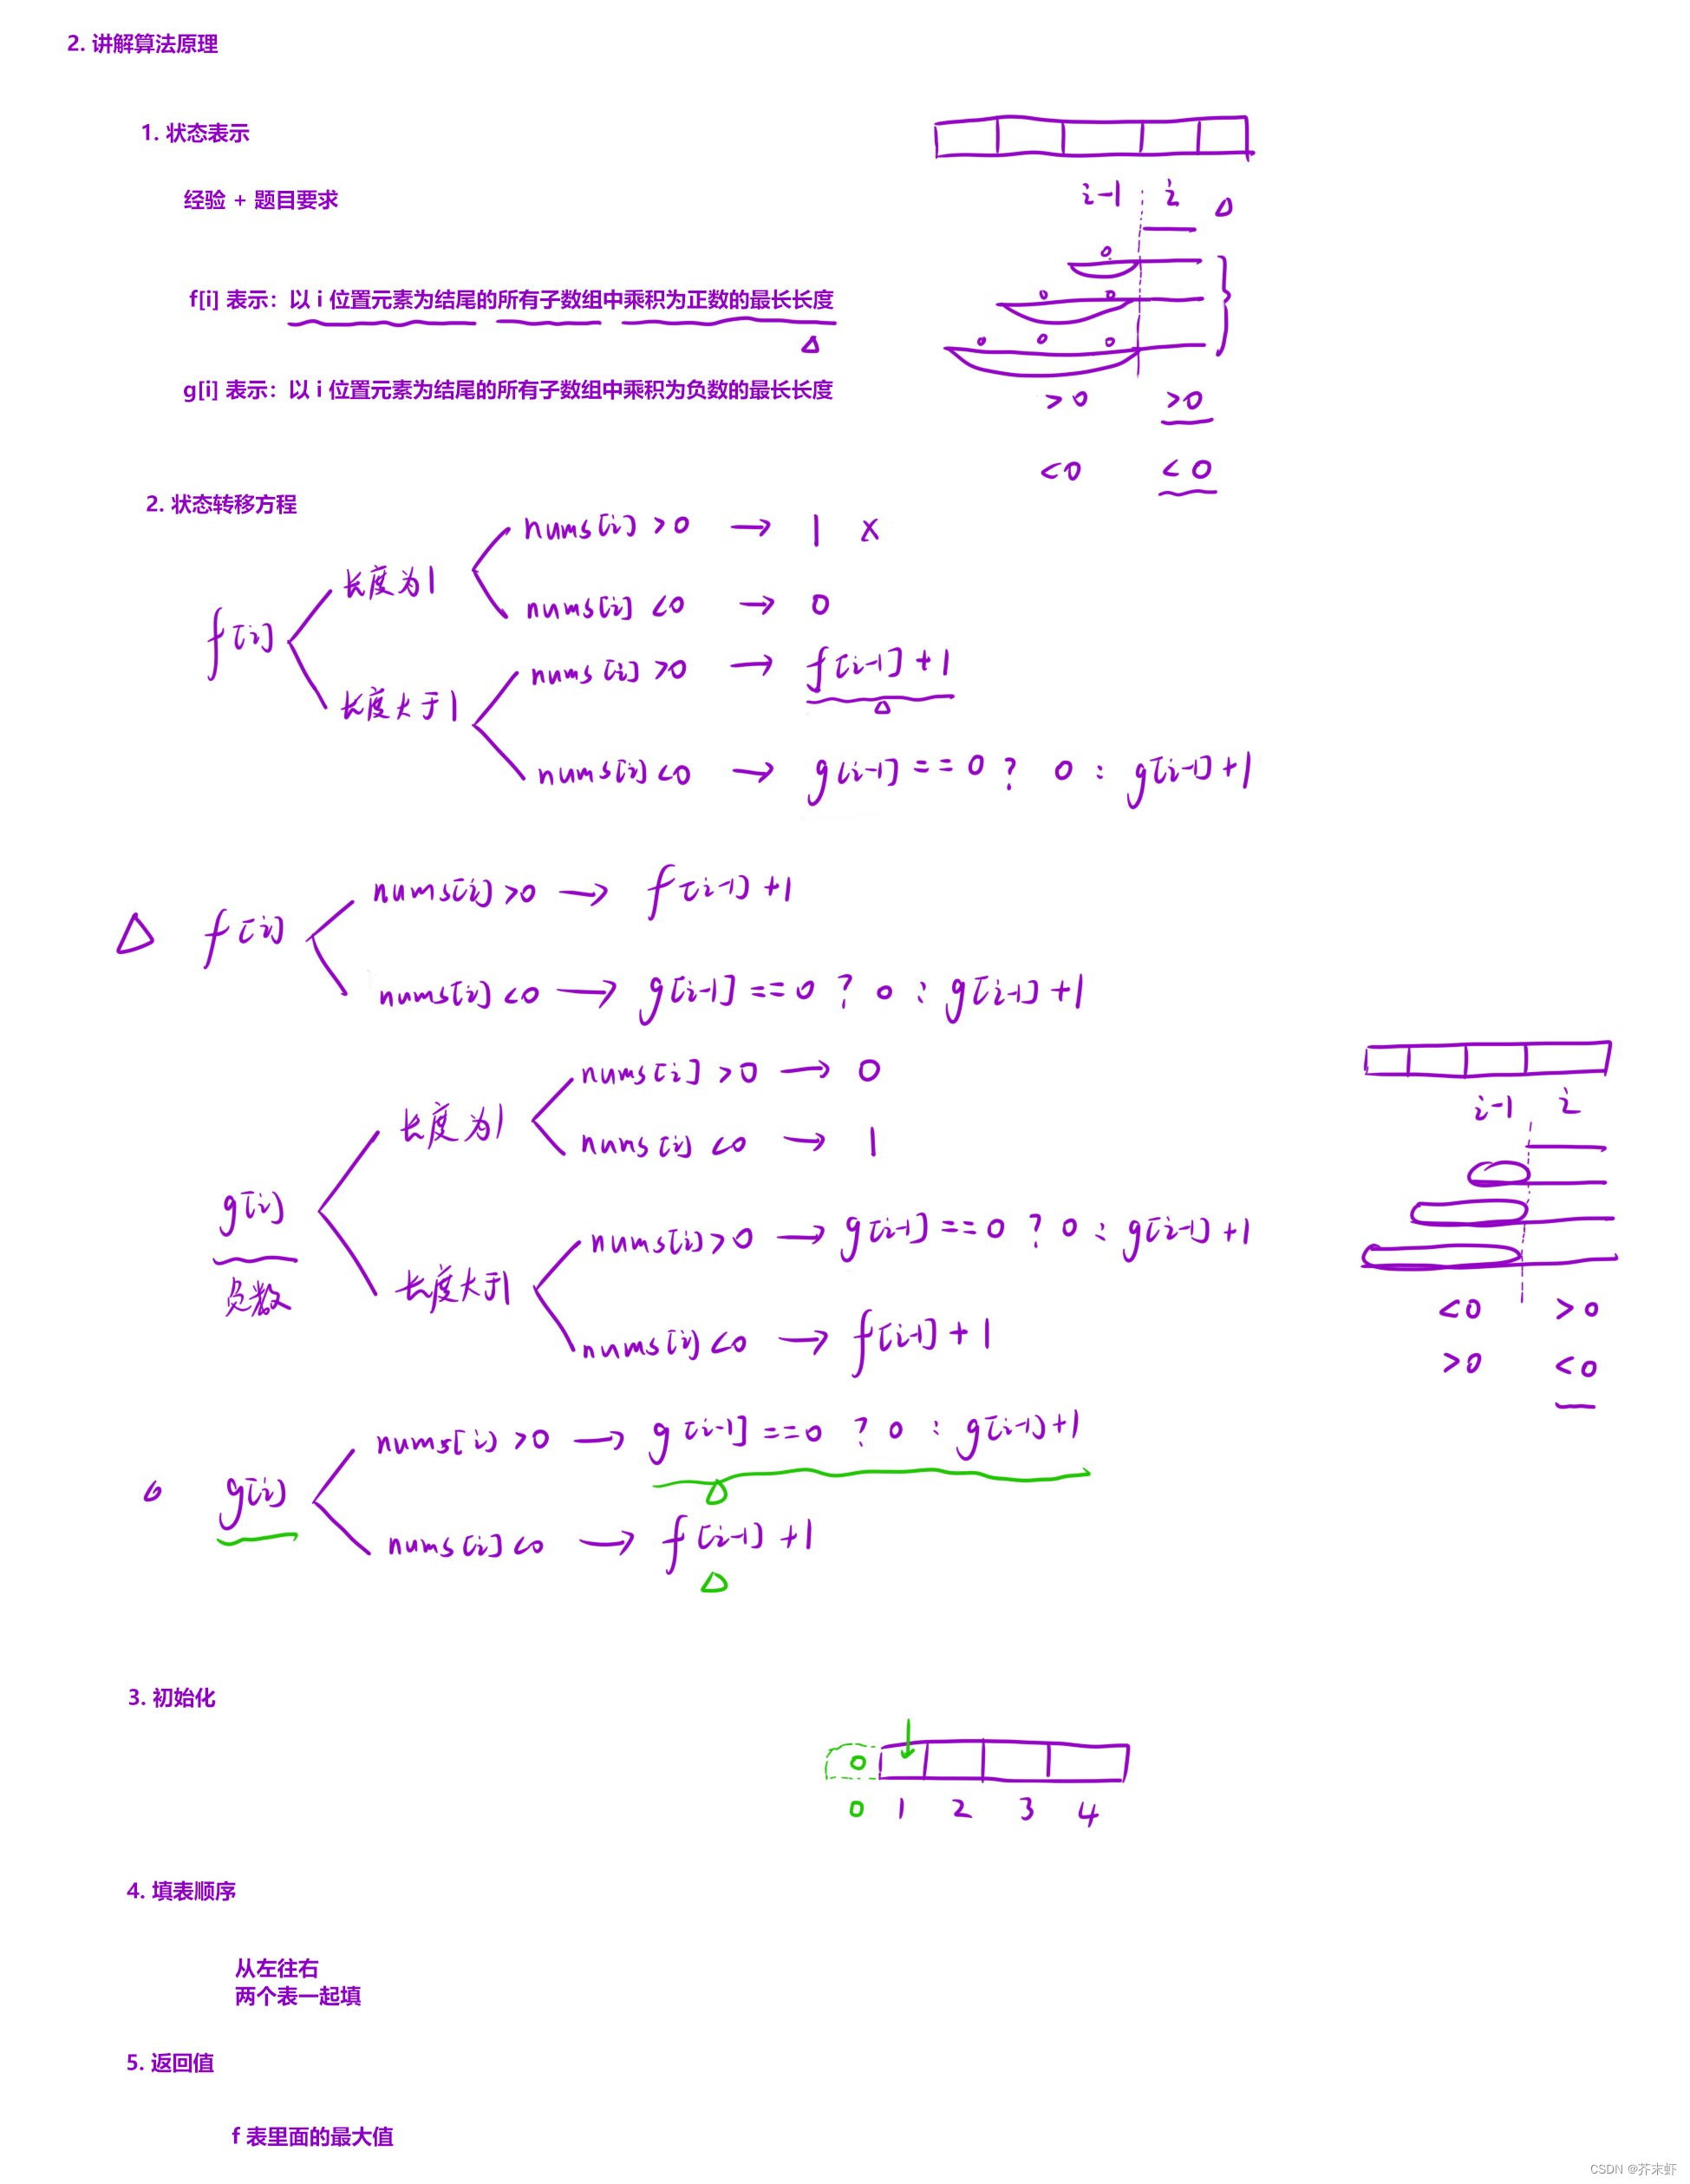 2. 讲解算法原理
1. 状态表示
经验 + 题目要求
i-1 i
f[i] 表示：以 i 位置元素为结尾的所有子数组中乘积为正数的最长长度
g[i] 表示：以 i 位置元素为结尾的所有子数组中乘积为负数的最长长度
>0 >0
<0 <0
2. 状态转移方程
f[i]
长度为1
nums[i] >0 → 1 x
nums[i] <0 → 0
长度大于1
nums[i] >0 → f[i-1] + 1
nums[i] <0 → g[i-1] == 0 ? 0 : g[i-1] + 1
△ f[i]
nums[i] >0 → f[i-1] + 1
nums[i] <0 → g[i-1] == 0 ? 0 : g[i-1] + 1
g[i]
负数
长度为1
nums[i] >0 → 0
nums[i] <0 → 1
长度大于1
nums[i] >0 → g[i-1] == 0 ? 0 : g[i-1] + 1
nums[i] <0 → f[i-1] + 1
i-1 i
<0 >0
>0 <0
g[i]
nums[i] >0 → g[i-1] == 0 ? 0 : g[i-1] + 1
nums[i] <0 → f[i-1] + 1
3. 初始化
0
0 1 2 3 4
4. 填表顺序
从左往右
两个表一起填
5. 返回值
f 表里面的最大值
CSDN @芥末虾